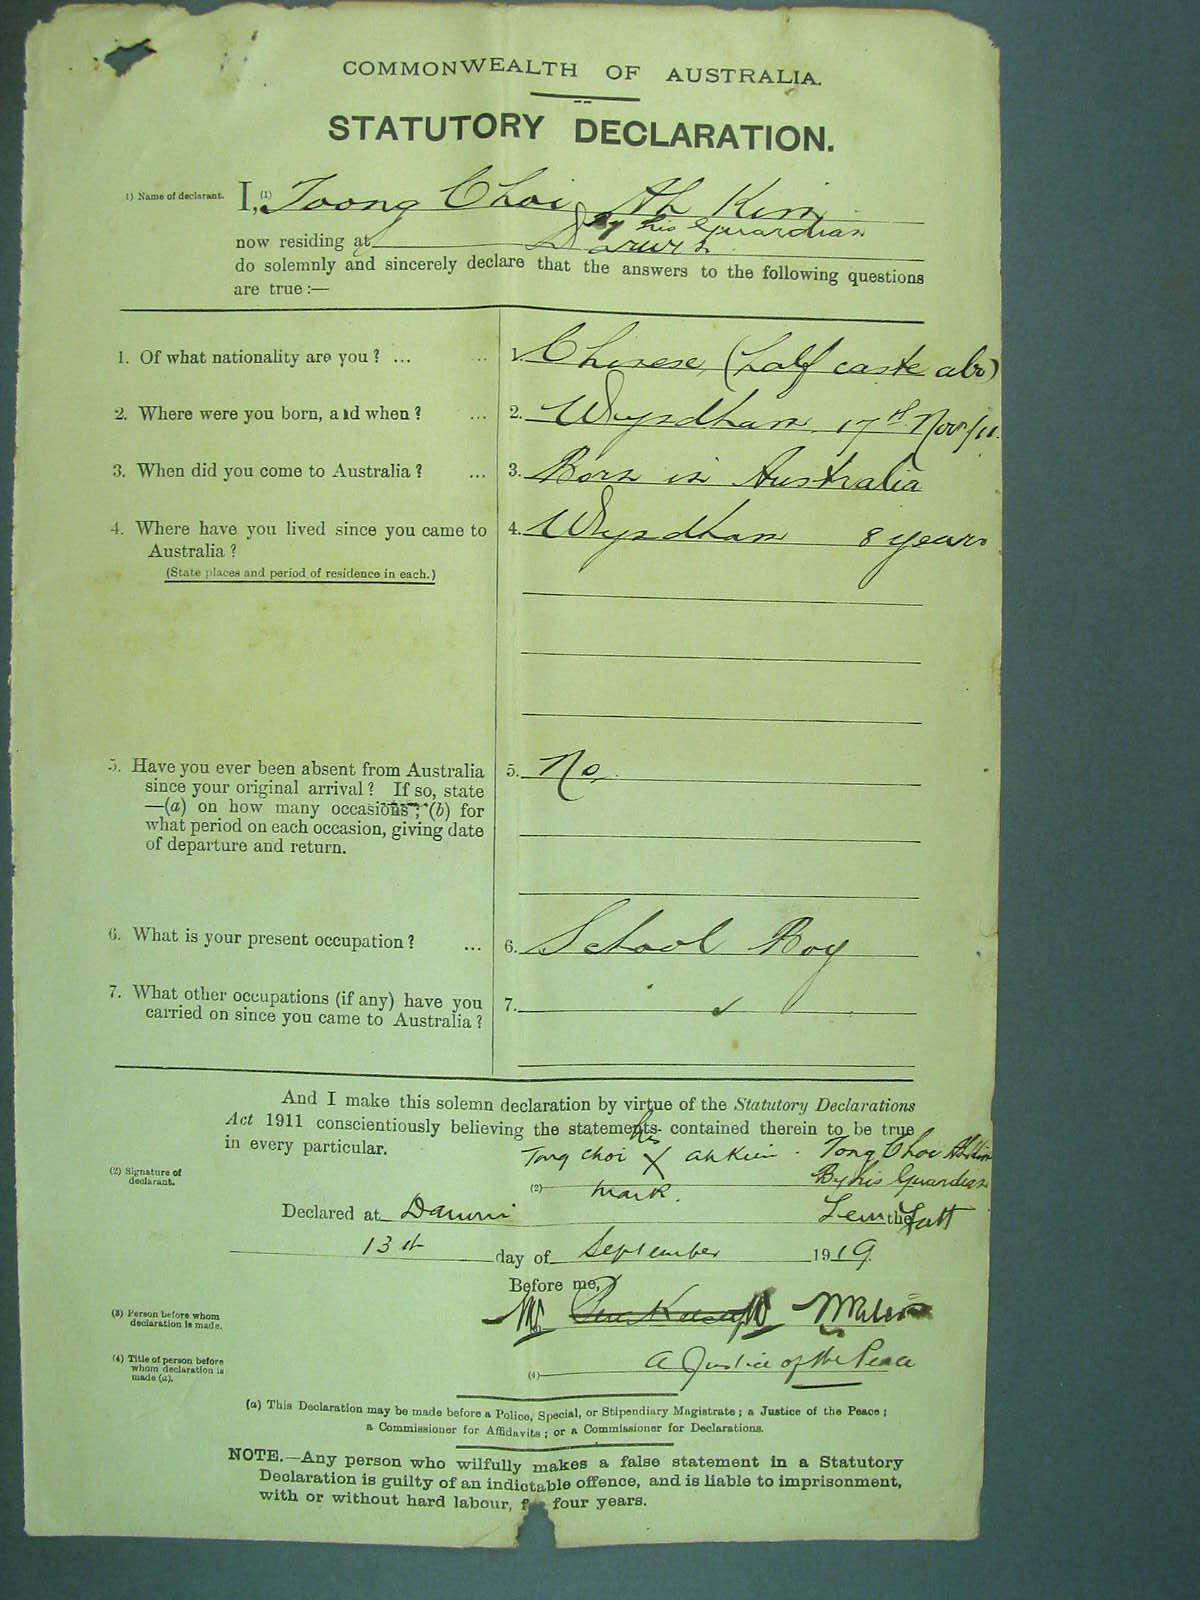 COMMONWEALTH OF AUSTRALIA.
STATUTORY DECLARATION.
1) Name of declarant. I, (1) Toong Choi Ah Kim
by his Guardian
now residing at Darwin
do solemnly and sincerely declare that the answers to the following questions
are true :—
1. Of what nationality are you ? ... ... 1. Chinese, (half caste abo)
2. Where were you born, and when ? ... 2. Wyndham, 17th Nov/11.
3. When did you come to Australia ? ... 3. Born in Australia
4. Where have you lived since you came to 4. Wyndham 8 years
Australia ?
(State places and period of residence in each.)
5. Have you ever been absent from Australia 5. No.
since your original arrival ? If so, state
—(a) on how many occasions ; (b) for
what period on each occasion, giving date
of departure and return.
6. What is your present occupation ? ... 6. School Boy
7. What other occupations (if any) have you 7.
carried on since you came to Australia ?
And I make this solemn declaration by virtue of the Statutory Declarations
Act 1911 conscientiously believing the statements contained therein to be true
in every particular.
his
Tong Choi X Ah Kim. Tong Choi Ah Kim
(2) Signature of declarant. (2) mark. By his Guardian
Declared at Darwin the Lem Fatt
13th day of September 1919
Before me,
(3) Person before whom
declaration is made.
(4) Title of person before
whom declaration is
made (a).
(4) A Justice of the Peace
(a) This Declaration may be made before a Police, Special, or Stipendiary Magistrate ; a Justice of the Peace ;
a Commissioner for Affidavits ; or a Commissioner for Declarations.
NOTE.—Any person who wilfully makes a false statement in a Statutory
Declaration is guilty of an indictable offence, and is liable to imprisonment,
with or without hard labour, for four years.